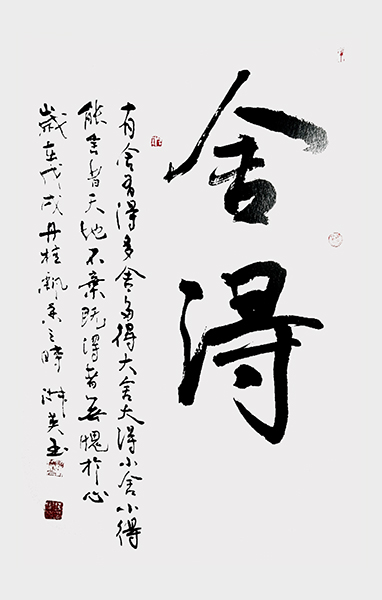 舍得
有舍有得多舍多得大舍大得小舍小得
能舍者天地不弃既得者无愧于心
岁在戊戌丹桂飘香之时 淑英书